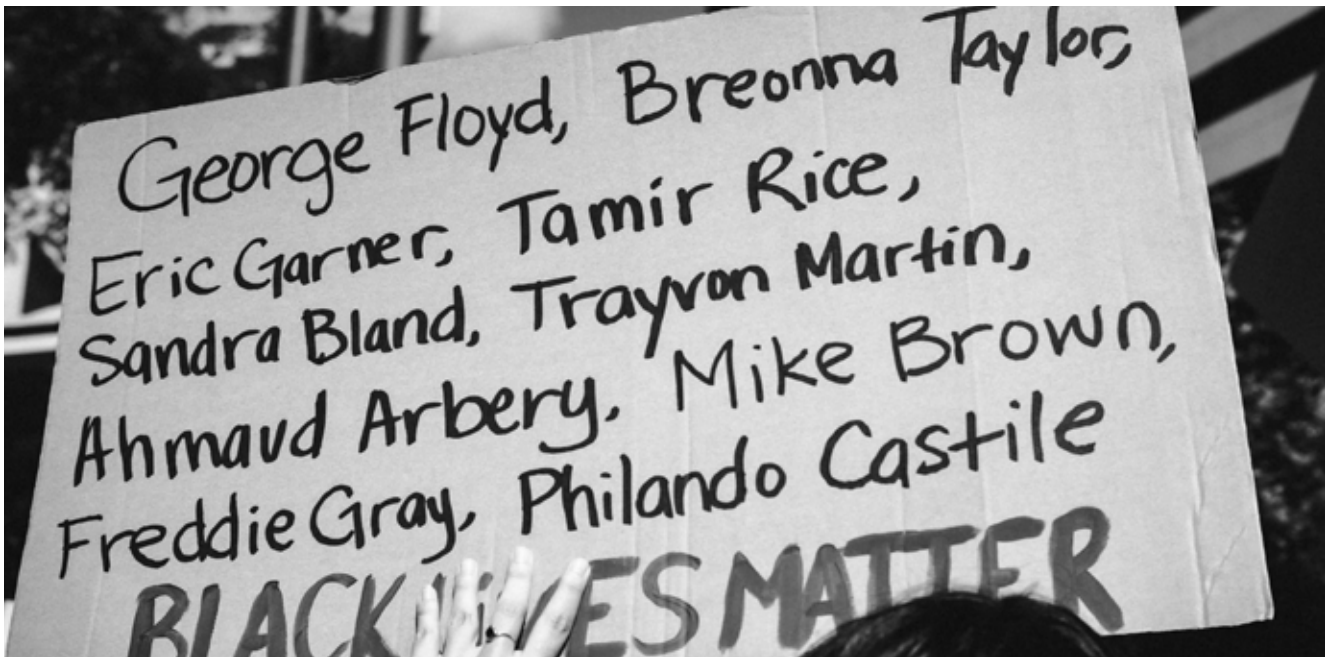 George Floyd, Breonna Taylor,
Eric Garner, Tamir Rice,
Sandra Bland, Trayvon Martin,
Ahmaud Arbery, Mike Brown,
Freddie Gray, Philando Castile
BLACK LiVES MATTER